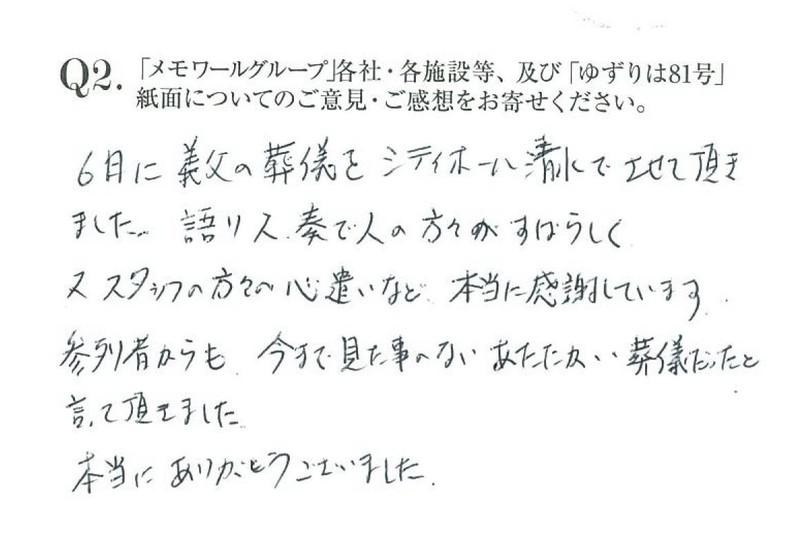 Q2.「メモワールグループ」各社・各施設等、及び「ゆずりは81号」
紙面についてのご意見・ご感想をお寄せください。
6日に義父の葬儀をシティホール清水でさせて頂き
ました。語り人.奏で人の方々がすばらしく
又スタッフの方々の心遣いなど、本当に感謝しています.
参列者からも、今まで見た事のないあたたかい葬儀だったと
言って頂きました.
本当にありがとうございました.